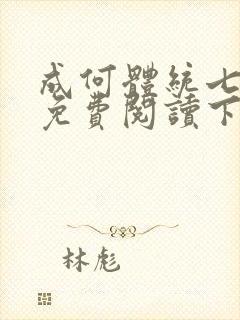 成何體統七
免費閱讀下
林彪